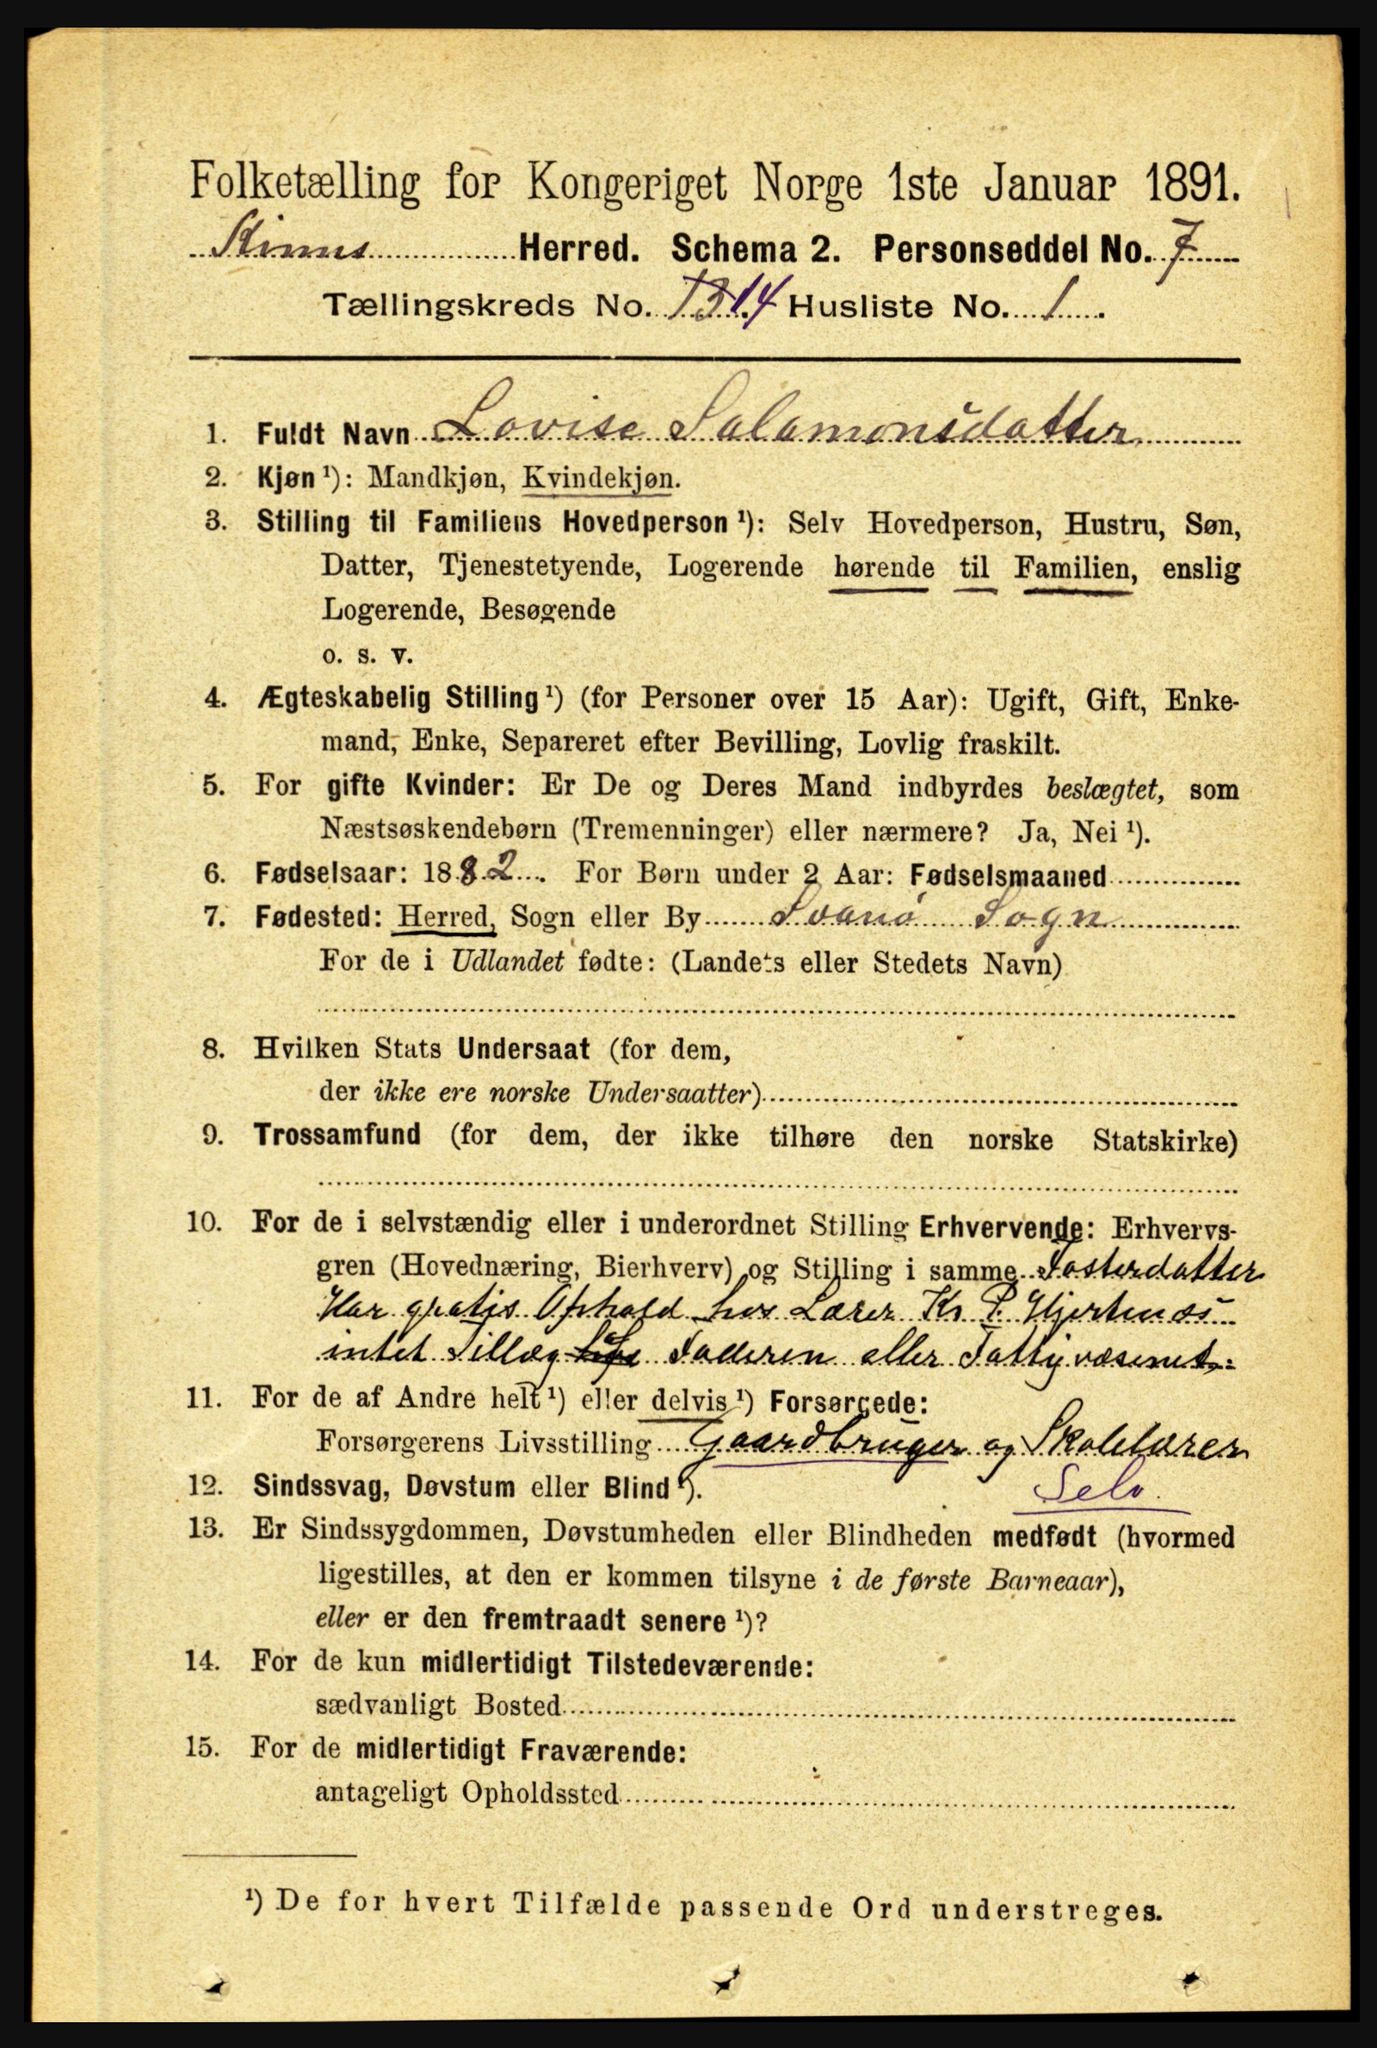 Folketælling for Kongeriget Norge 1ste Januar 1891.
Kinns Herred. Schema 2. Personseddel No. 7
Tællingskreds No. 13 14 Husliste No. 1.
1. Fuldt Navn Lovise Salamonsdatter
2. Kjøn ¹): Mandkjøn, Kvindekjøn.
3. Stilling til Familiens Hovedperson ¹): Selv Hovedperson, Hustru, Søn,
Datter, Tjenestetyende, Logerende hørende til Familien, enslig
Logerende, Besøgende
o. s. v.
4. Ægteskabelig Stilling ¹) (for Personer over 15 Aar): Ugift, Gift, Enke-
mand, Enke, Separeret efter Bevilling, Lovlig fraskilt.
5. For gifte Kvinder: Er De og Deres Mand indbyrdes beslægtet, som
Næstsøskendebørn (Tremenninger) eller nærmere? Ja, Nei ¹).
6. Fødselsaar: 1882. For Børn under 2 Aar: Fødselsmaaned
7. Fødested: Herred, Sogn eller By Svanø Sogn
For de i Udlandet fødte: (Landets eller Stedets Navn)
8. Hvilken Stats Undersaat (for dem,
der ikke ere norske Undersaatter)
9. Trossamfund (for dem, der ikke tilhøre den norske Statskirke)
10. For de i selvstændig eller i underordnet Stilling Erhvervende: Erhvervs-
gren (Hovednæring, Bierhverv) og Stilling i samme Fosterdatter
Har gratis Ophold hos Lærer Kr. P. Hjertenæs
intet Tillæg Faderen eller Fattigvæsenet.
11. For de af Andre helt ¹) eller delvis ¹) Forsørgede:
Forsørgerens Livsstilling Gaardbruger og Skolelærer
12. Sindssvag, Døvstum eller Blind ¹). Selv.
13. Er Sindssygdommen, Døvstumheden eller Blindheden medfødt (hvormed
ligestilles, at den er kommen tilsyne i de første Barneaar),
eller er den fremtraadt senere ¹)?
14. For de kun midlertidigt Tilstedeværende:
sædvanligt Bosted
15. For de midlertidigt Fraværende:
antageligt Opholdssted
¹) De for hvert Tilfælde passende Ord understreges.